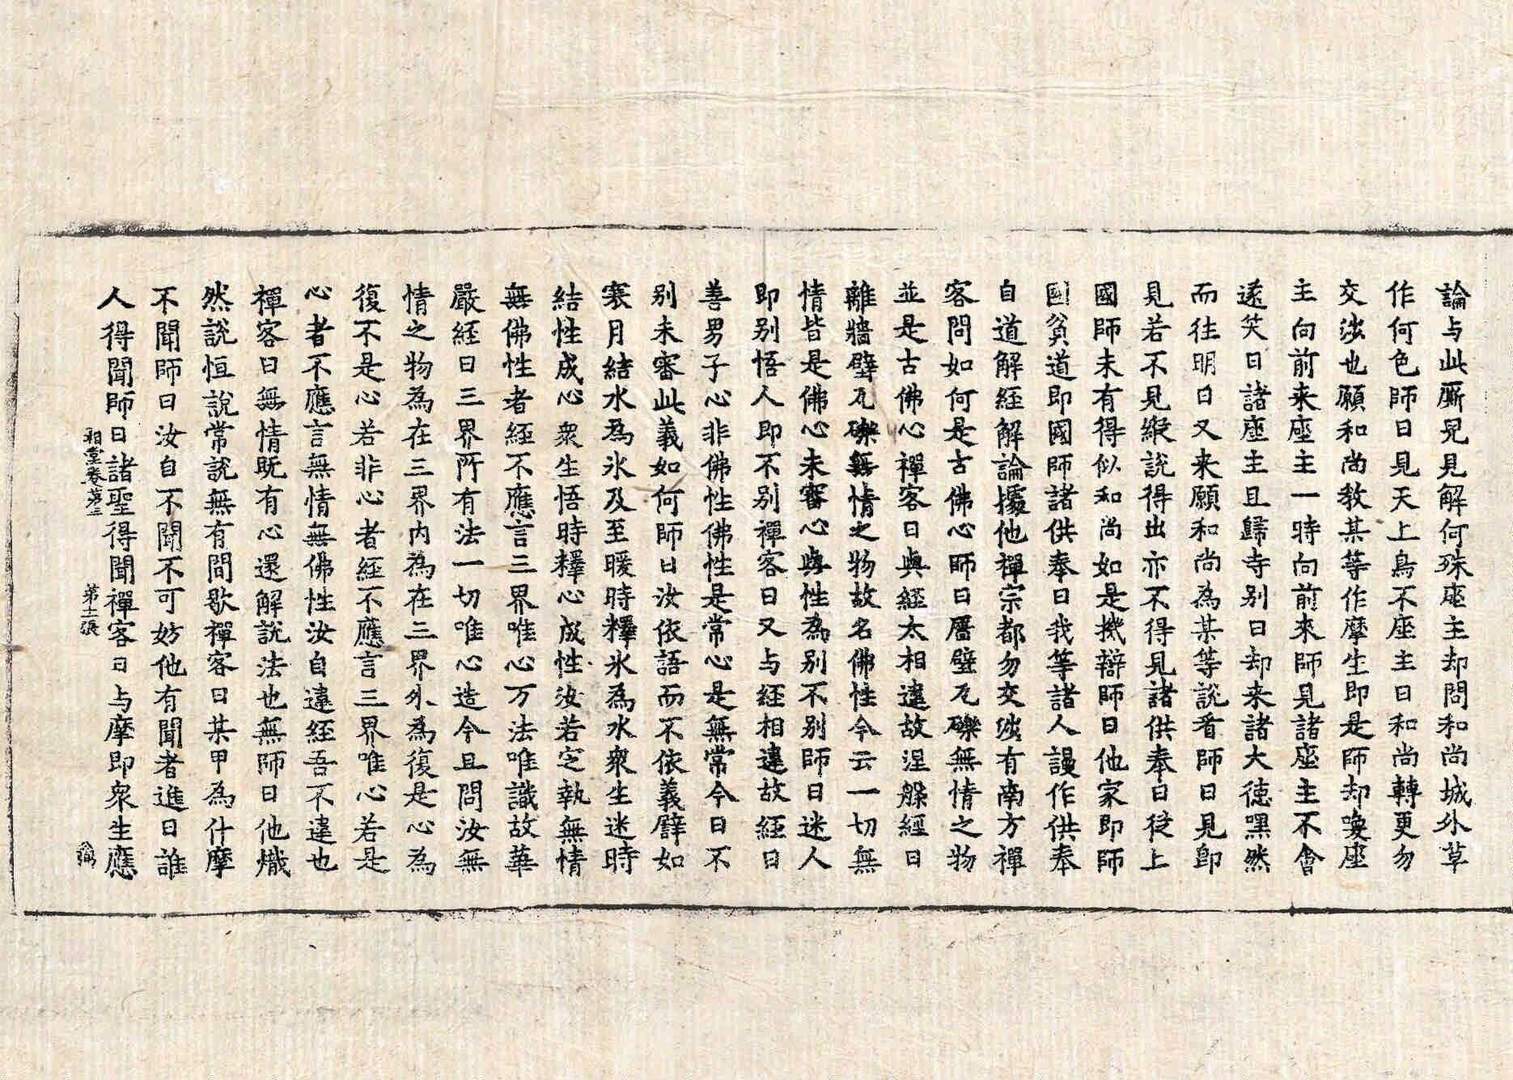 論与此廝兒見解何殊座主却問和尚城外草
作何色師曰見天上鳥不座主曰和尚轉更勿
交涉也願和尚教某等作摩生即是師却喚座
主向前来座主一時向前來師見諸座主不會
遂笑曰諸座主且歸寺別日却来諸大德嘿然
而往明日又来願和尚為某等說看師曰見即
見若不見縱說得出亦不得見諸供奉曰從上
國師未有得似和尚如是機辯師曰他家即師
國貧道即國師諸供奉曰我等諸人謾作供奉
自道解經解論據他禪宗都勿交涉有南方禪
客問如何是古佛心師曰牆壁瓦礫無情之物
並是古佛心禪客曰與經太相違故涅槃經曰
離牆壁瓦礫無情之物故名佛性今云一切無
情皆是佛心未審心與性為別不別師曰迷人
即別悟人即不別禪客曰又与經相違故經曰
善男子心非佛性佛性是常心是無常今日不
別未審此義如何師曰汝依語而不依義譬如
寒月結水為氷及至暖時釋氷為水衆生迷時
結性成心衆生悟時釋心成性汝若定執無情
無佛性者經不應言三界唯心万法唯識故華
嚴經曰三界所有法一切唯心造今且問汝無
情之物為在三界内為在三界外為復是心為
復不是心若非心者經不應言三界唯心若是
心者不應言無情無佛性汝自違經吾不違也
禪客曰無情既有心還解說法也無師曰他熾
然說恒說常說無有間歇禪客曰某甲為什摩
不聞師曰汝自不聞不可妨他有聞者進曰誰
人得聞師曰諸聖得聞禪客曰与摩即衆生應
祖堂卷第三 第十二張